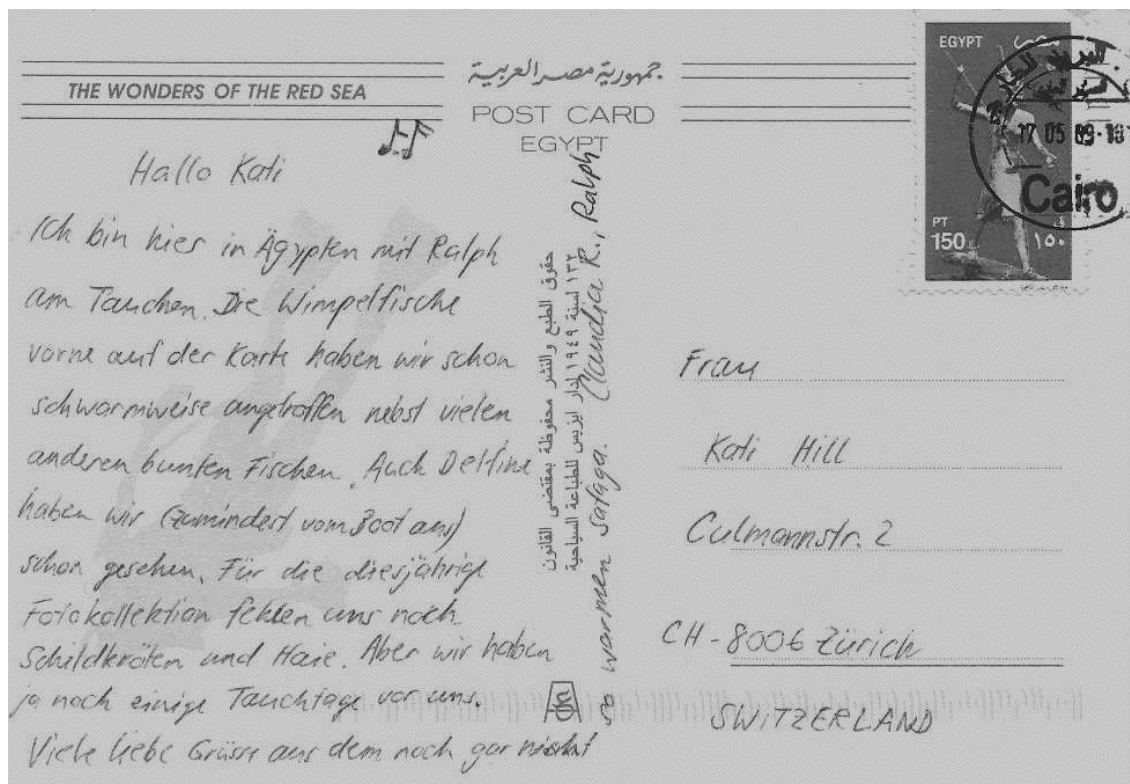 THE WONDERS OF THE RED SEA
جمهورية مصر العربية
POST CARD
EGYPT
Hallo Kati
Ich bin hier in Ägypten mit Ralph
am Tauchen. Die Wimpelfische
vorne auf der Karte haben wir schon
schwarmweise angetroffen nebst vielen
anderen bunten Fischen. Auch Delfine
haben wir (zumindest vom Boot aus)
schon gesehen. Für die diesjährige
Fotokollektion fehlen uns noch
Schildkröten und Haie. Aber wir haben
ja noch einige Tauchtage vor uns.
Viele liebe Grüsse aus dem noch gar nicht
so warmen Safaga. Claudia R., Ralph
حقوق الطبع والنشر محفوظة بمقتضى القانون
١٣٢ لسنة ١٩٤٩ لدار ايزيس للطباعة السياحية
EGYPT مصر
PT
150 ١٥٠
17 05 09
Cairo
Frau
Kati Hill
Culmannstr. 2
CH-8006 Zürich
SWITZERLAND